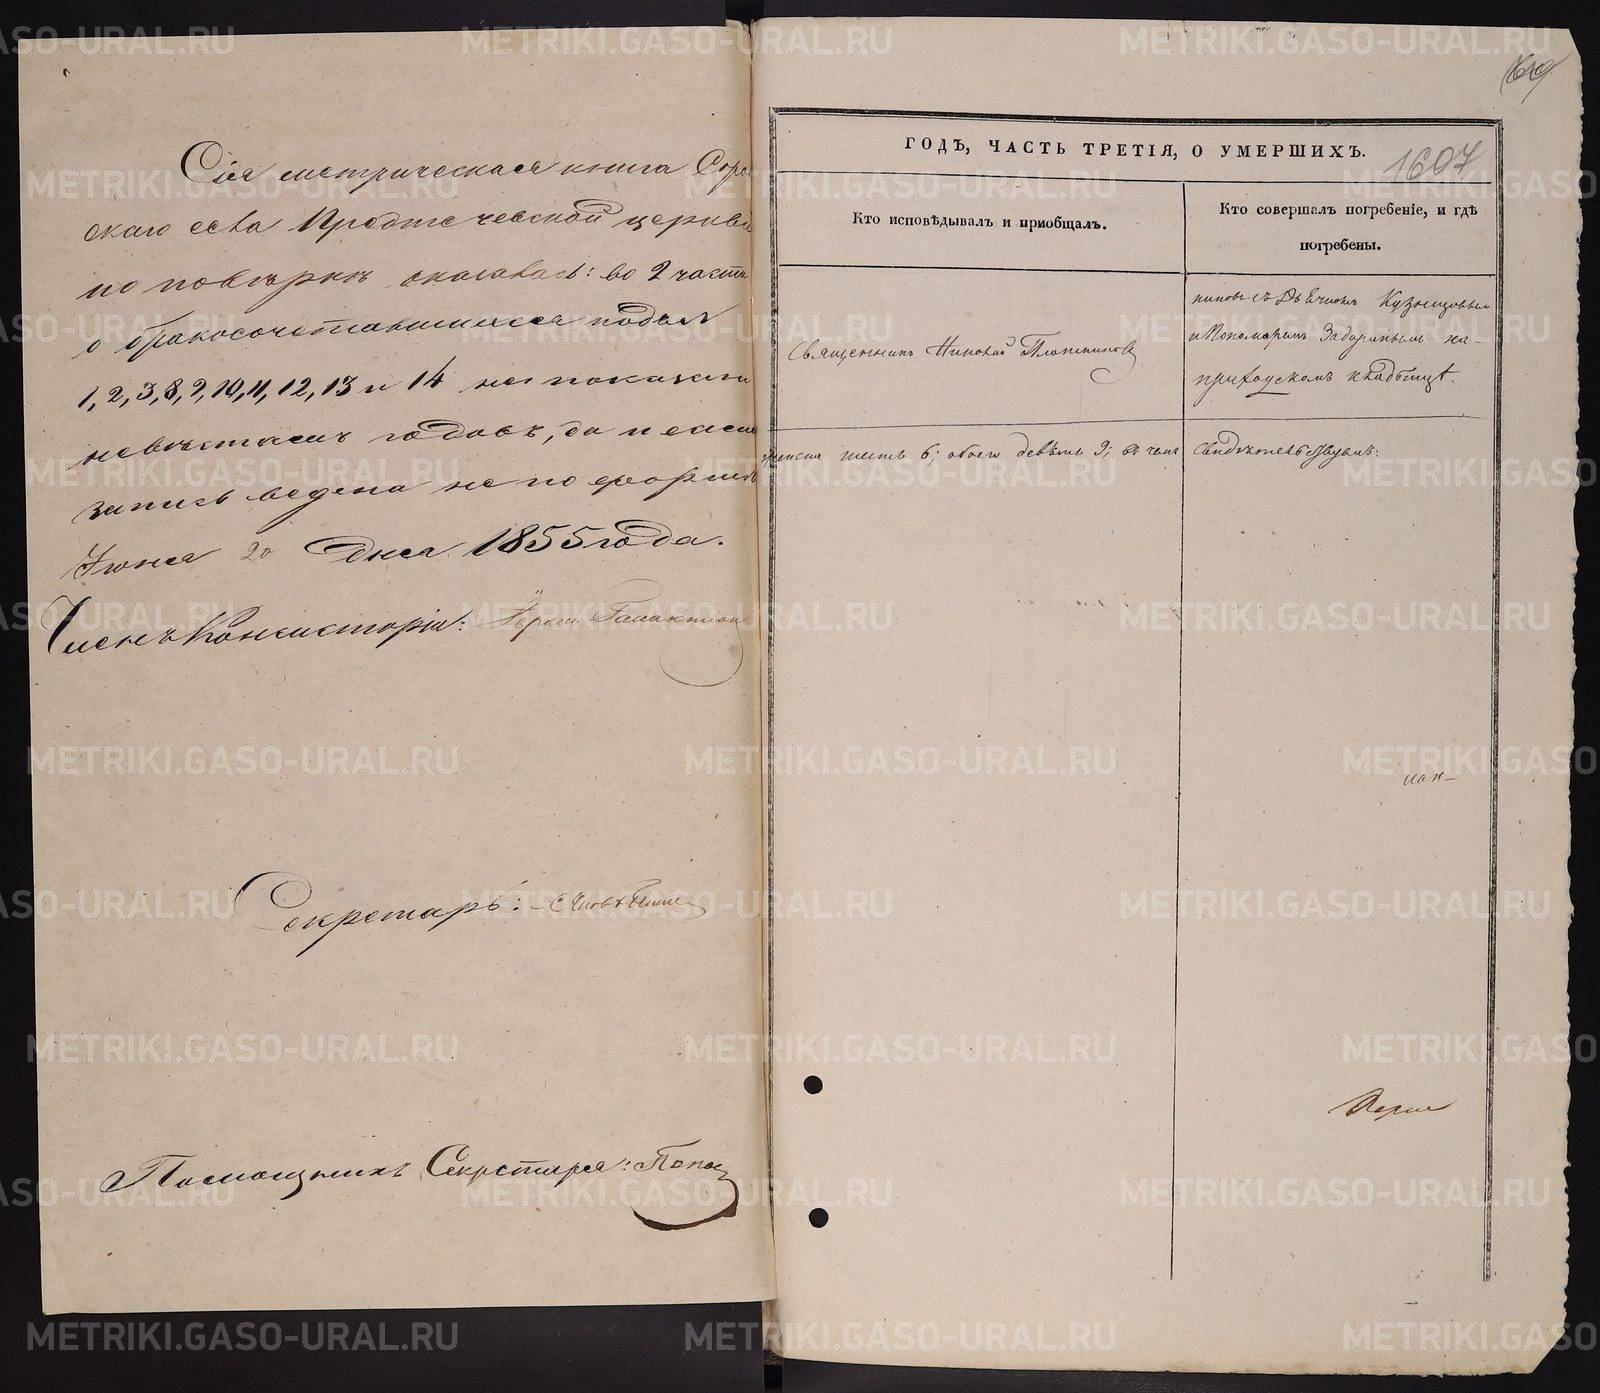 Сія метрическая книга Соро
скаго села Предтечевской церкви
по повѣркѣ оказалась: во 2 части
о бракосочетавшихся подъ №
1, 2, 3, 8, 9, 10, 11, 12, 13 и 14 не показаны
невѣстамъ годовъ, да и самая
запись ведена не по формѣ
Іюня 20 дня 1855 года.
Членъ Консисторіи:
Секретарь:
Помощникъ Секретаря: Попов
69
ГОДЪ, ЧАСТЬ ТРЕТІЯ, О УМЕРШИХЪ.
1607
Кто исповѣдывалъ и пріобщалъ.
Кто совершалъ погребеніе, и гдѣ
погребены.
Священникъ Николай Плотниковъ
никовъ съ Дьячкомъ Кузнецовымъ
и Пономаремъ Задоринымъ на
приходскомъ кладбищѣ.
женска шесть 6; обоего девять 9; въ чемъ
свидѣтельствуемъ:
METRIKI.GASO-URAL.RU